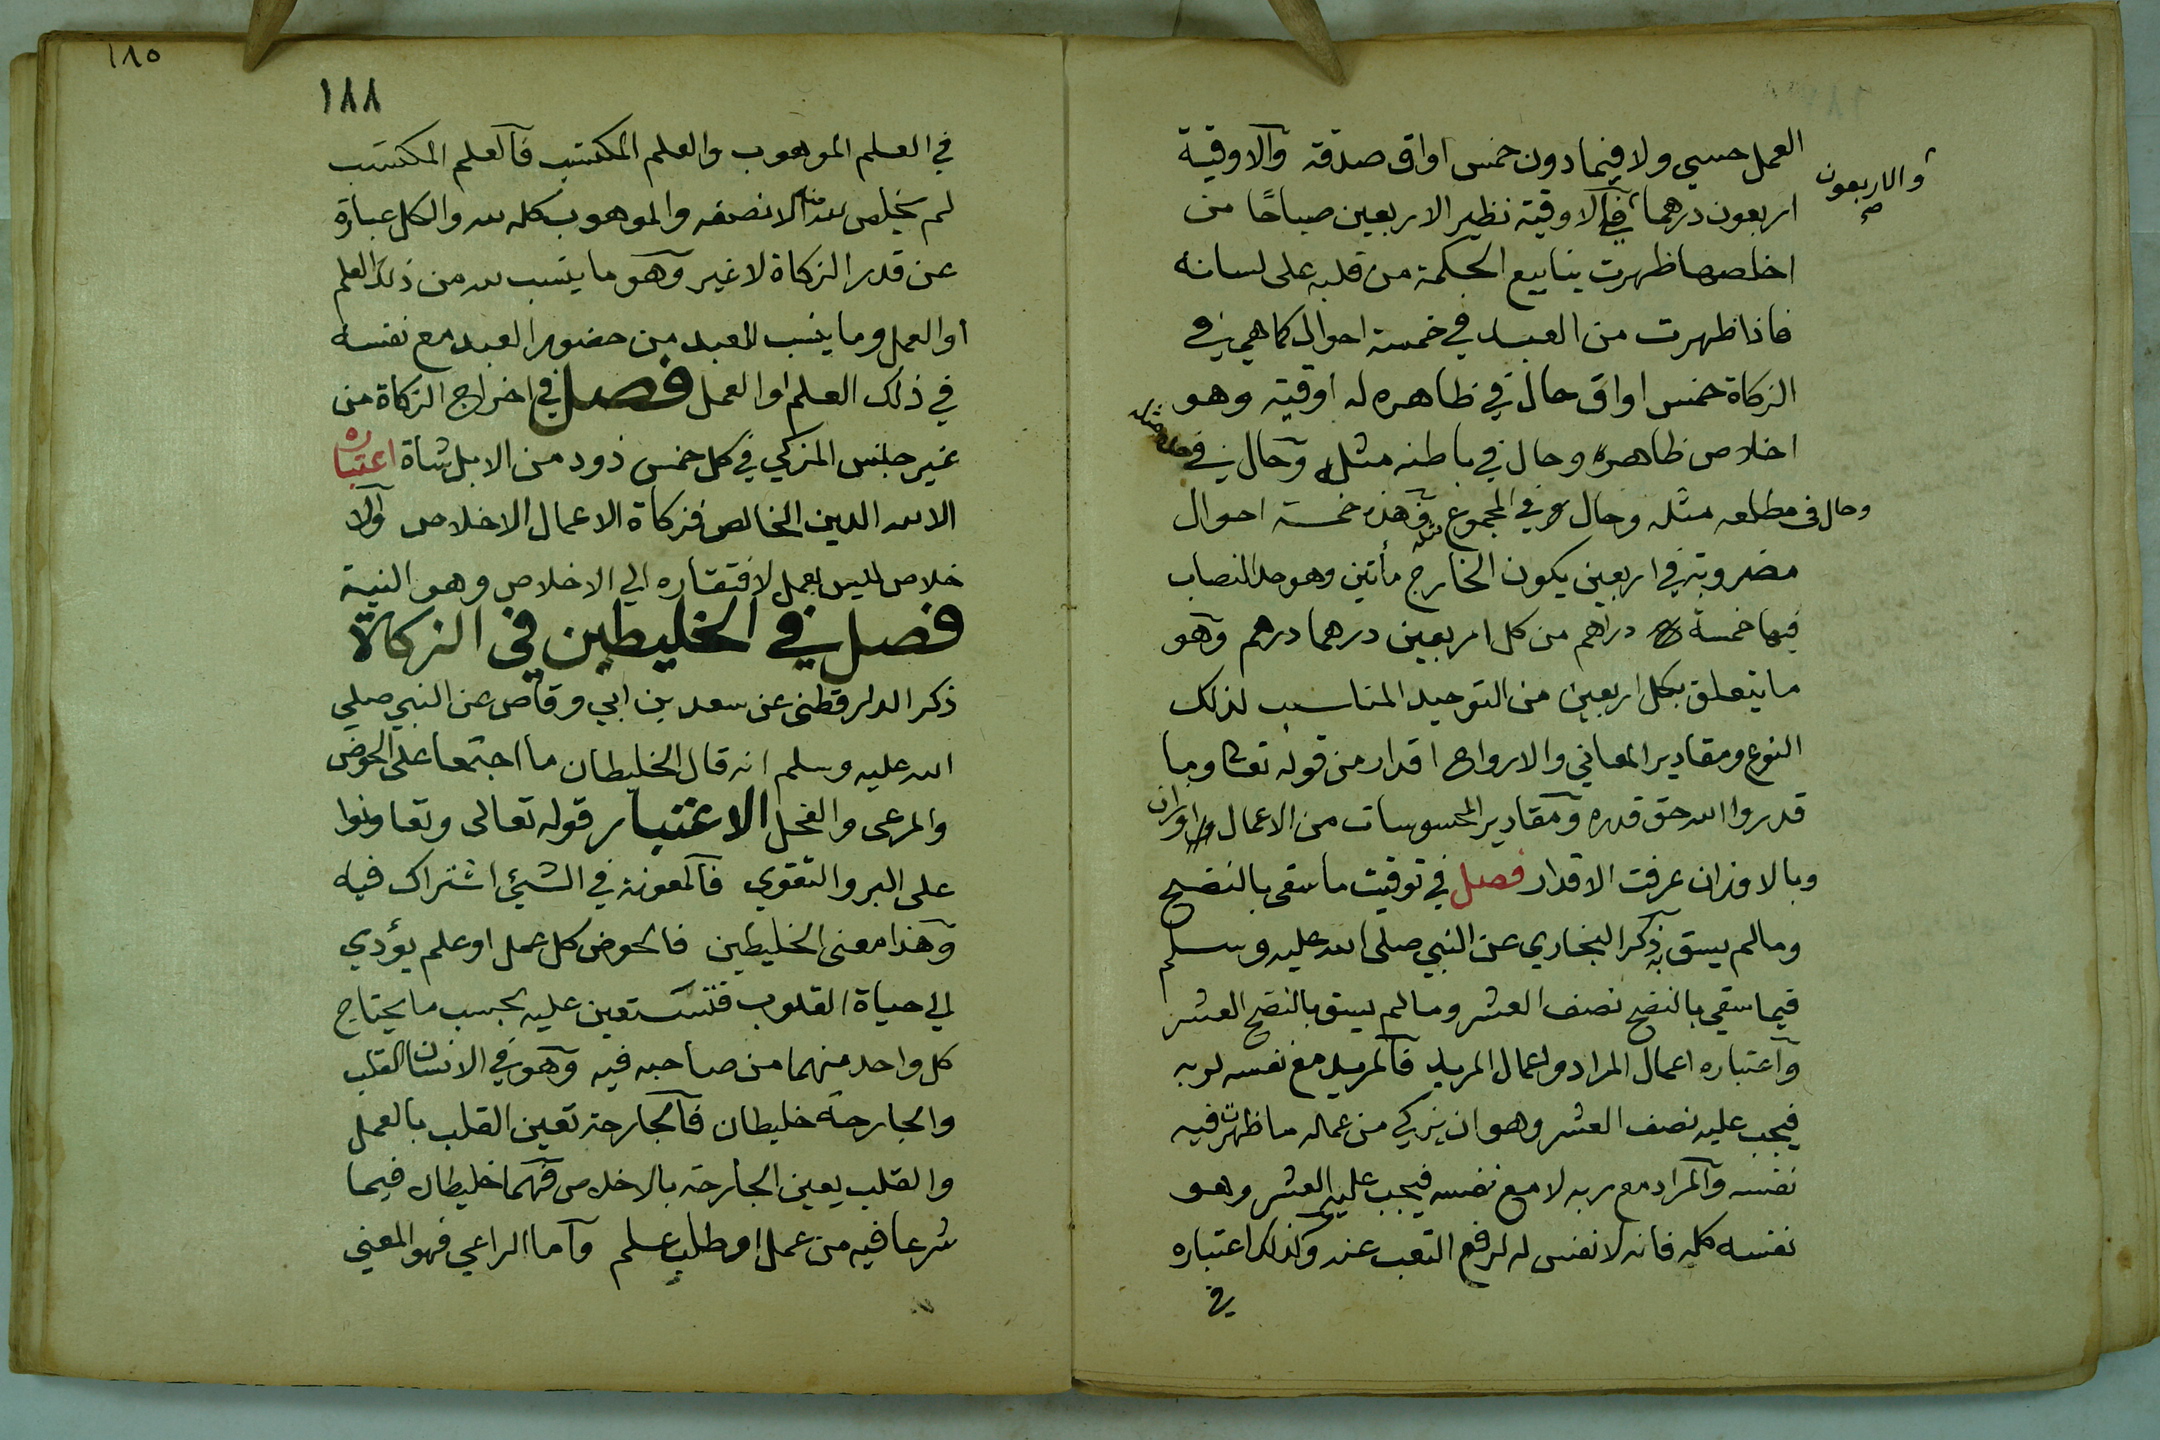 العمل حسي ولا فيما دون خمس اواق صدقة والاوقية
والاربعون صح
اربعون درهما في الاوقية نظير الاربعين صباحًا من
اخلصها ظهرت ينابيع الحكمة من قلبه على لسانه
فاذا ظهرت من العبد في خمسة احوال كما هي في
الزكاة خمس اواق حال في ظاهره له اوقية وهو
اخلاص ظاهره وحال في باطنه مثله وحال في حده مثله
وحال في مطلعه مثله وحال في المجموع مثله فهذه خمسة احوال
مضروبة في اربعين يكون الخارج مأتين وهو حد النصاب
فيها خمسة دراهم من كل اربعين درهما درهم وهو
ما يتعلق بكل اربعين من التوحيد المناسب لذلك
النوع ومقادير المعاني والارواح اقدار من قوله تعالى وما
قدروا الله حق قدره ومقادير المحسوسات من الاعمال اوزان
وبالاوزان عرفت الاقدار فصل في توقيت ما سقى بالنضح
وما لم يسق به ذكر البخاري عن النبي صلى الله عليه وسلم
فيما سقي بالنضح نصف العشر وما لم يسق بالنضح العشر
واعتباره اعمال المراد واعمال المريد فالمريد مع نفسه لربه
فيجب عليه نصف العشر وهو ان يزكي من عماله ما ظهرت فيه
نفسه والمراد مع ربه لا مع نفسه فيجب عليه العشر وهو
نفسه كله فانه لا نفس له لرفع التعب عنه وكذلك اعتباره
في
١٨٥
١٨٨
في العلم الموهوب والعلم المكتسب فالعلم المكتسب
لم يخلص لله منه الا نصفه والموهوب كله لله والكل عبارة
عن قدر الزكاة لا غير وهو ما ينسب لله من ذلك العلم
او العمل وما ينسب للعبد من حضور العبد مع نفسه
في ذلك العلم او العمل فصل في اخراج الزكاة من
غير جنس المزكي في كل خمس ذود من الابل شاة اعتباره
الا لله الدين الخالص فزكاة الاعمال الاخلاص والا
خلاص ليس بعمل لافتقاره الي الاخلاص وهو النية
فصل في الخليطين في الزكاة
ذكر الدارقطني عن سعد بن ابي وقاص عن النبي صلي
الله عليه وسلم انه قال الخليطان ما اجتمعا على الحوض
والمرعى والفحل الاعتبار قوله تعالى وتعاونوا
على البر والتقوي فالمعونة في الشيئ اشتراك فيه
وهذا معنى الخليطين فالحوض كل عمل او علم يؤدي
الي حياة القلوب فتستعين عليه بحسب ما يحتاج
كل واحد منهما من صاحبه فيه وهو في الانسان القلب
والجارحة خليطان فالجارحة تعين القلب بالعمل
والقلب يعين الجارحة بالاخلاص فهما خليطان فيما
شرعا فيه من عمل او طلب علم واما الراعي فهو المعنى